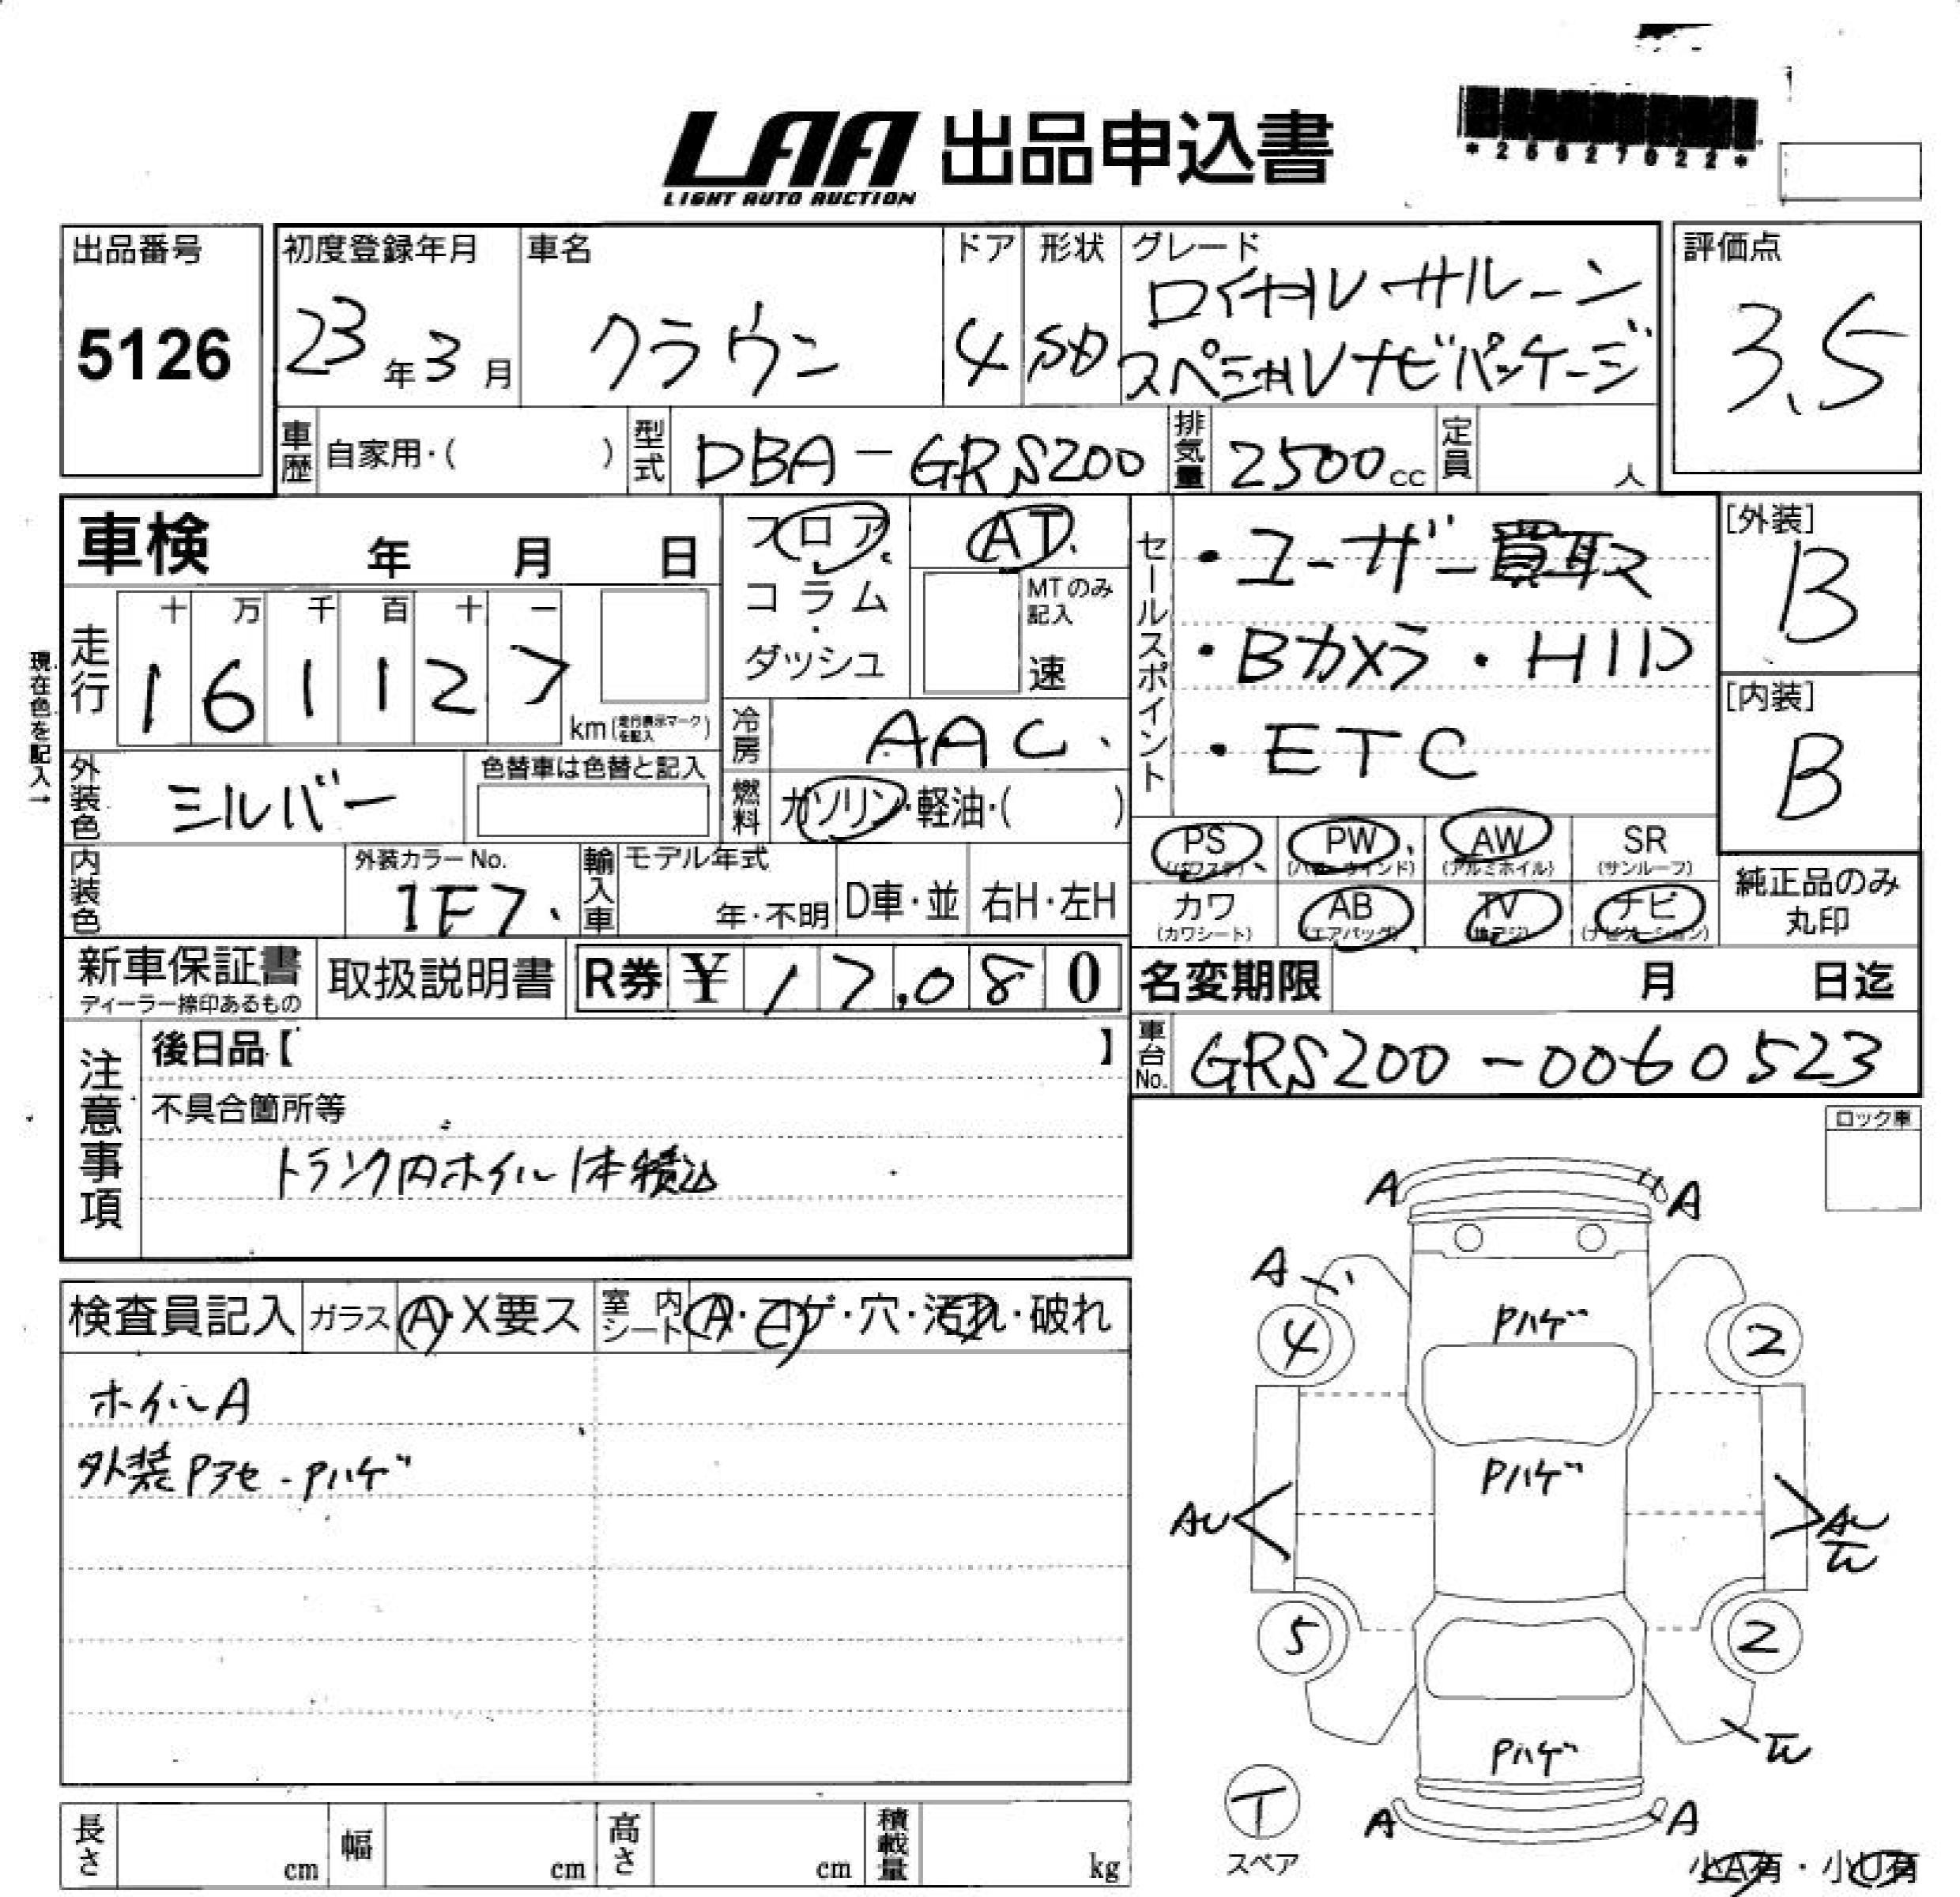 LAA 出品申込書
LIGHT AUTO AUCTION
*25027022*
出品番号
5126
初度登録年月
23年3月
車名
クラウン
ドア
4
形状
SD
グレード
ロイヤルサルーン
スペシャルナビパッケージ
評価点
3.5
車歴
自家用・( )
型式
DBA-GRS200
排気量
2500cc
定員
人
車検 年 月 日
フロア
・
コラム
・
ダッシュ
AT
MTのみ
記入
速
セールスポイント
・ユーザー買取
・Bカメラ・HID
・ETC
[外装]
B
[内装]
B
現在色を記入→
走行
十 万 千 百 十 一
1 6 1 1 2 7
km(走行表示マークを記入)
冷房
AAC.
外装色
シルバー
色替車は色替と記入
燃料
ガソリン・軽油・( )
PS (パワステ)
PW (パワーウインド)
AW (アルミホイル)
SR (サンルーフ)
カワ (カワシート)
AB (エアバッグ)
TV (地デジ)
ナビ (ナビゲーション)
純正品のみ
丸印
内装色
外装カラーNo.
1F7.
輸入車
モデル年式
年・不明
D車・並
右H・左H
新車保証書
ディーラー捺印あるもの
取扱説明書
R券 ¥ 17,080
名変期限 月 日迄
車台No.
GRS200-0060523
注意事項
後日品【 】
不具合箇所等
トランク内ホイル1本積込
ロック車
検査員記入
ガラス
A・X要ス
室内シート
A・コゲ・穴・汚れ・破れ
ホイルA
外装Pアセ-Pハゲ
A
A
A
Pハゲ
4
2
Pハゲ
AU
AU
W
5
2
Pハゲ
W
T
スペア
A
A
小A有・小U有
長さ cm
幅 cm
高さ cm
積載量 kg